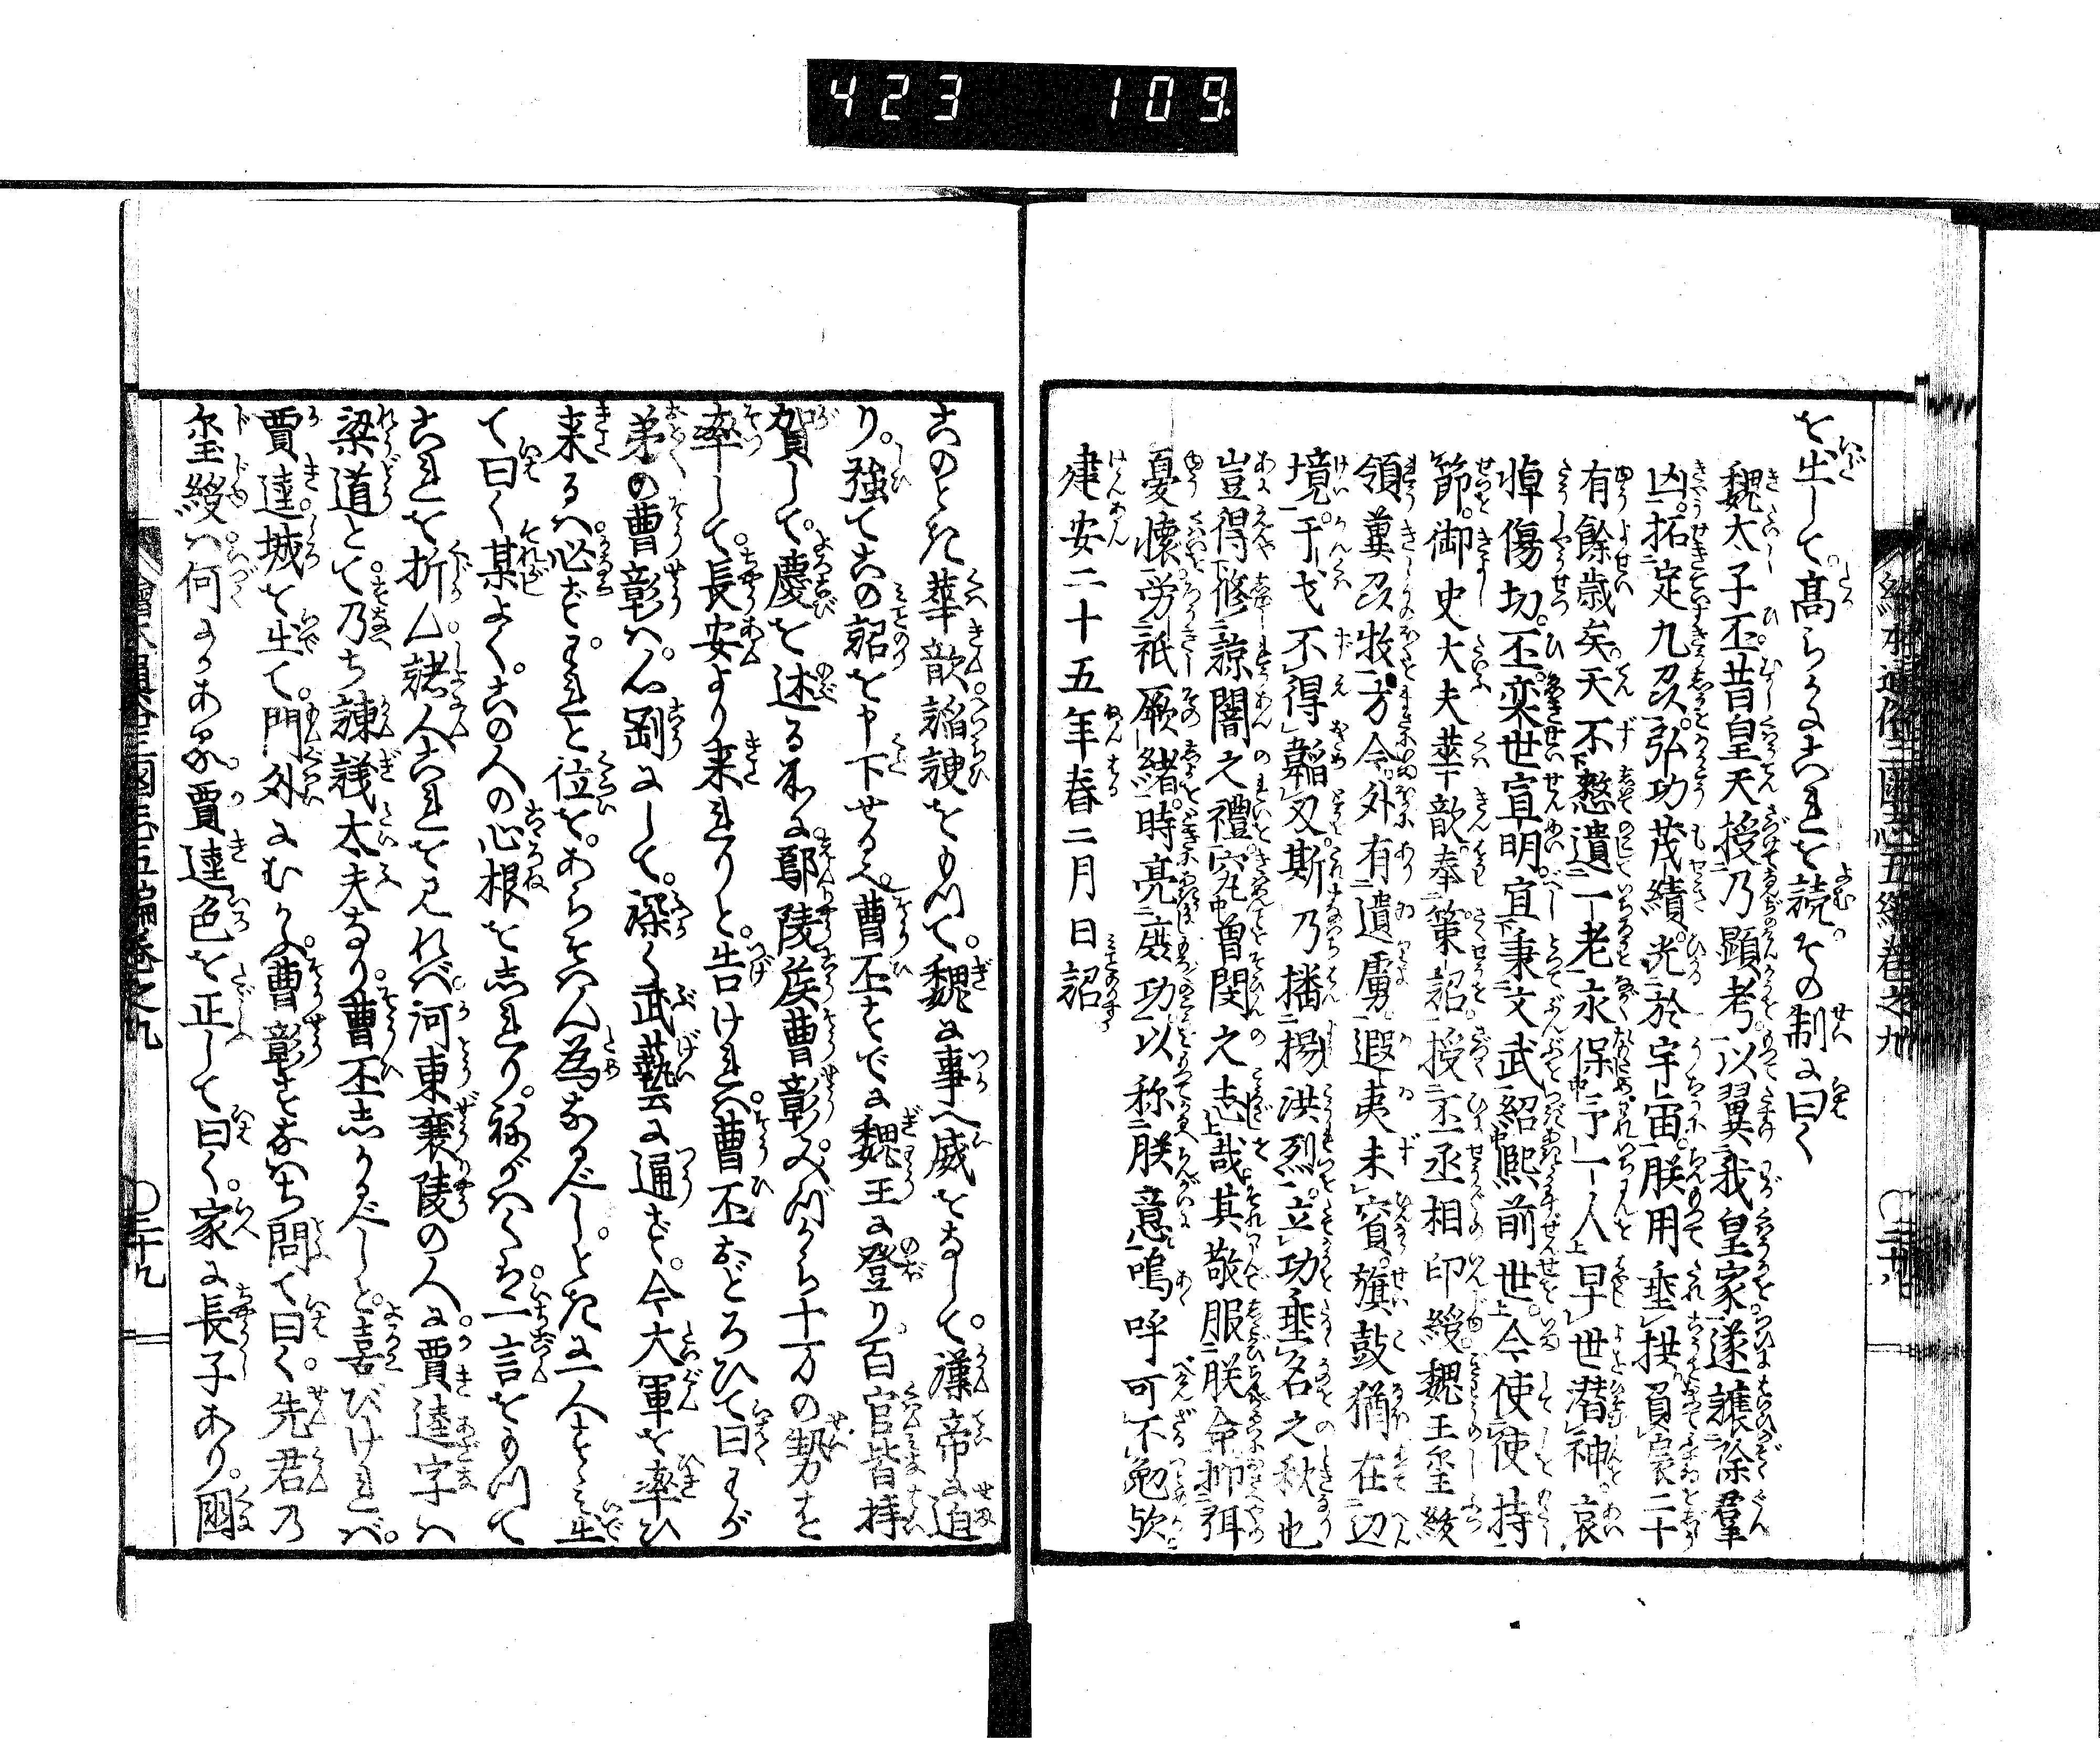 423 109
繪本通俗三國志五編卷之九
を出して。高らかにこれを読。その制に曰く
魏太子丕。昔皇天授乃顕考。以翼我皇家。遂攘除羣
凶。拓定九州。弘功茂績。光於宇宙。朕用垂拱負扆二十
有餘歳矣。天不憖遺一老。永保予一人。早世潜神。哀
悼傷切。丕奕世宣明。宜秉文武紹熙前世。今使使持
節。御史大夫華歆。奉策詔。授丕丞相印綬魏王璽紱
領冀州牧。方今外有遺虜。遐夷未賓。旗鼓猶在辺
境。干戈不得韜刃。斯乃播揚洪烈。立功垂名之秋也
豈得修諒闇之禮。究曽閔之志哉。其敬服朕命。抑弭
憂懐。労祗厥緒。時亮庶功。以称朕意。嗚呼可不勉歟
建安二十五年春二月日詔
このとき華歆諂諛をもつて。魏に事へ威をなして。漢帝に迫
り。強てこの詔を申下せるなり。曹丕すでに魏王に登り。百官皆拝
賀して。慶を述る所に。鄢陵侯曹彰みづから十万の勢を
率して。長安より来れりと。告ければ。曹丕おどろひて曰わが
弟の曹彰ハ。心剛にして。深く武藝に通ず。今大軍を率ひ
来るハ。必ずわれと位を。あらそハん為なるべしと。ときに一人すゝみ出
て曰く某よく。この人の心根をしれり。ねがハくハ。一言をもつて
これを折ん諸人これを見れバ。河東襄陵の人に。賈逵字ハ
梁道とて乃ち諌議太夫なり。曹丕しかるべしと。喜びけれバ。
賈逵。城を出て。門外にむかふ。曹彰すなはち問て曰く。先君乃
璽綬ハ。何にかある。賈逵色を正して曰く。家に長子あり。國
繪本通俗三國志五編卷之九
〇三十九